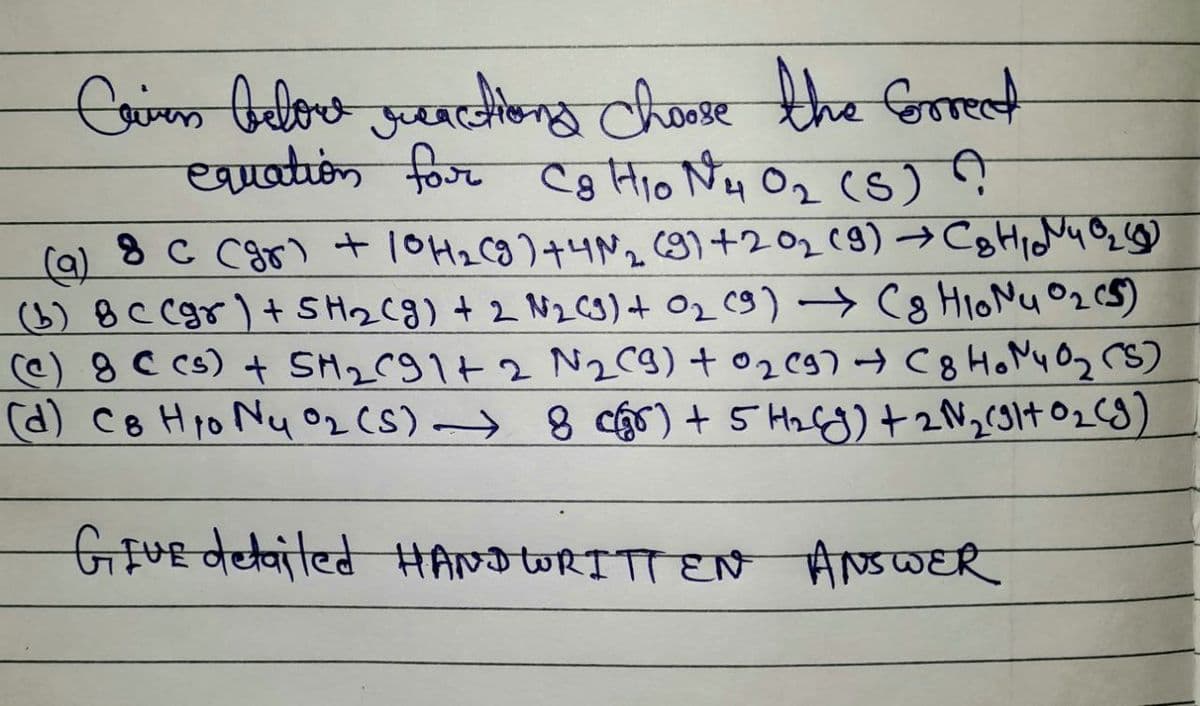 Given below reactions choose the Correct
equation for C8 H10 N4 O2 (S) ?
(a) 8 C (gr) + 10H2(g)+4N2 (g)+2O2(g) → C8H10N4O2(g)
(b) 8C(gr)+5H2(g) + 2 N2(g)+ O2(g) → C8 H10N4O2(S)
(c) 8 C (s) + 5H2(g)+ 2 N2(g) + O2(g) → C8 H10N4O2 (S)
(d) C8 H10 N4 O2 (S) → 8 C(gr) + 5 H2(g) + 2N2(g)+ O2(g)
GIVE detailed HANDWRITTEN ANSWER